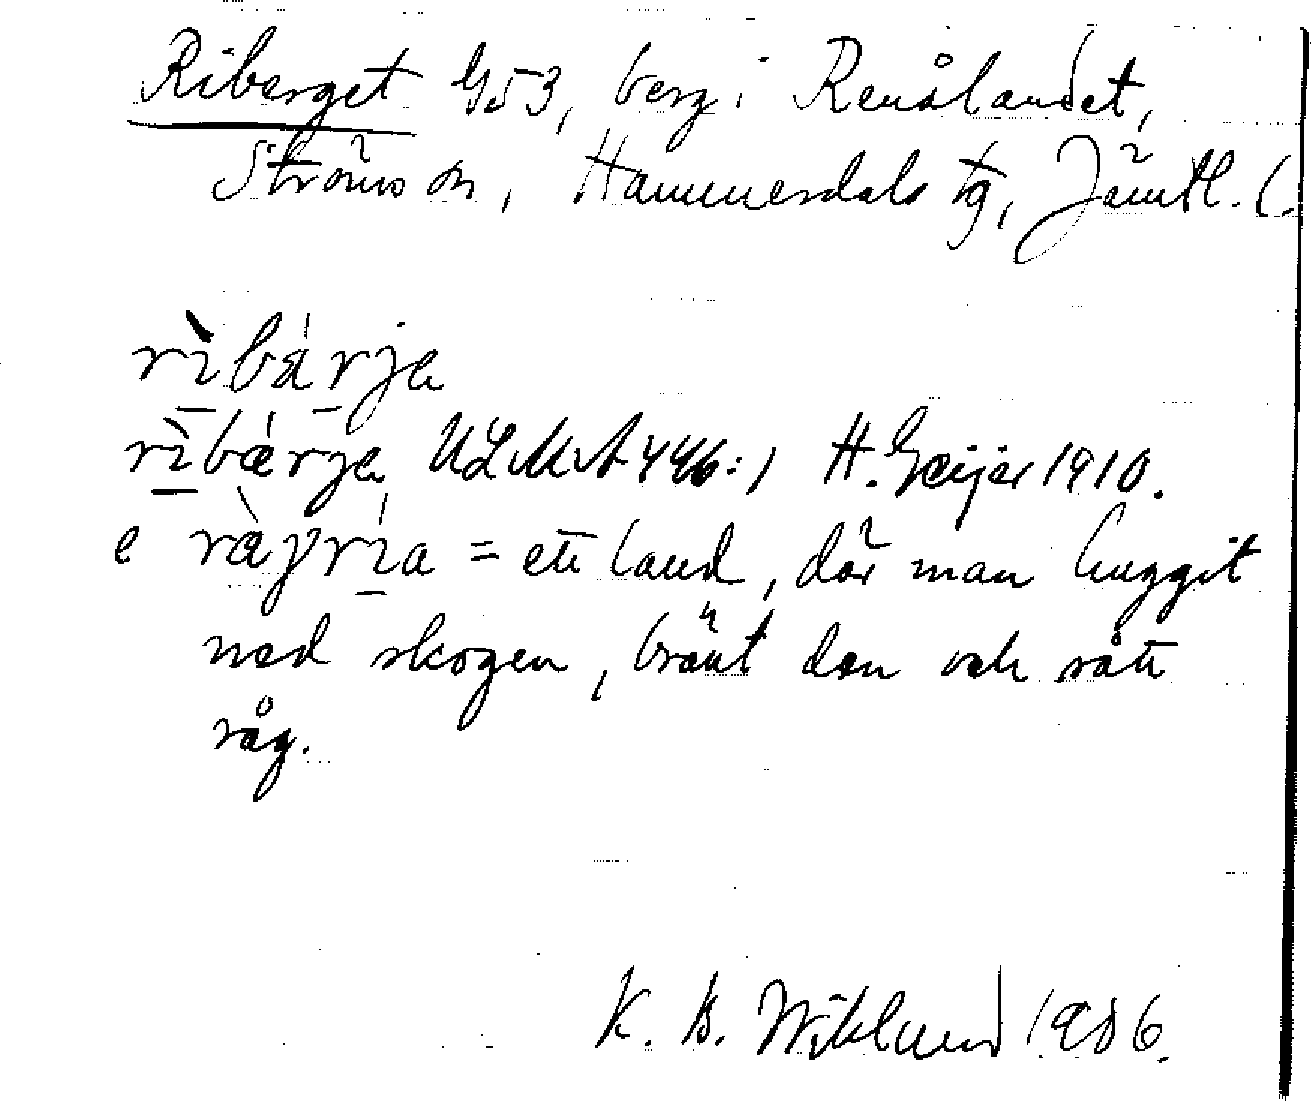 Riberget G53, berg i Renålandet,
Ströms sn, Hammerdals tg, Jämtl. l.
rìbá̀rja
rìbǽrja ULMA 446:1 H. Geijer 1910.
e ràgría = ett land, där man huggit
ned skogen, bränt den och sått
råg.
K. B. Wiklund 1906.